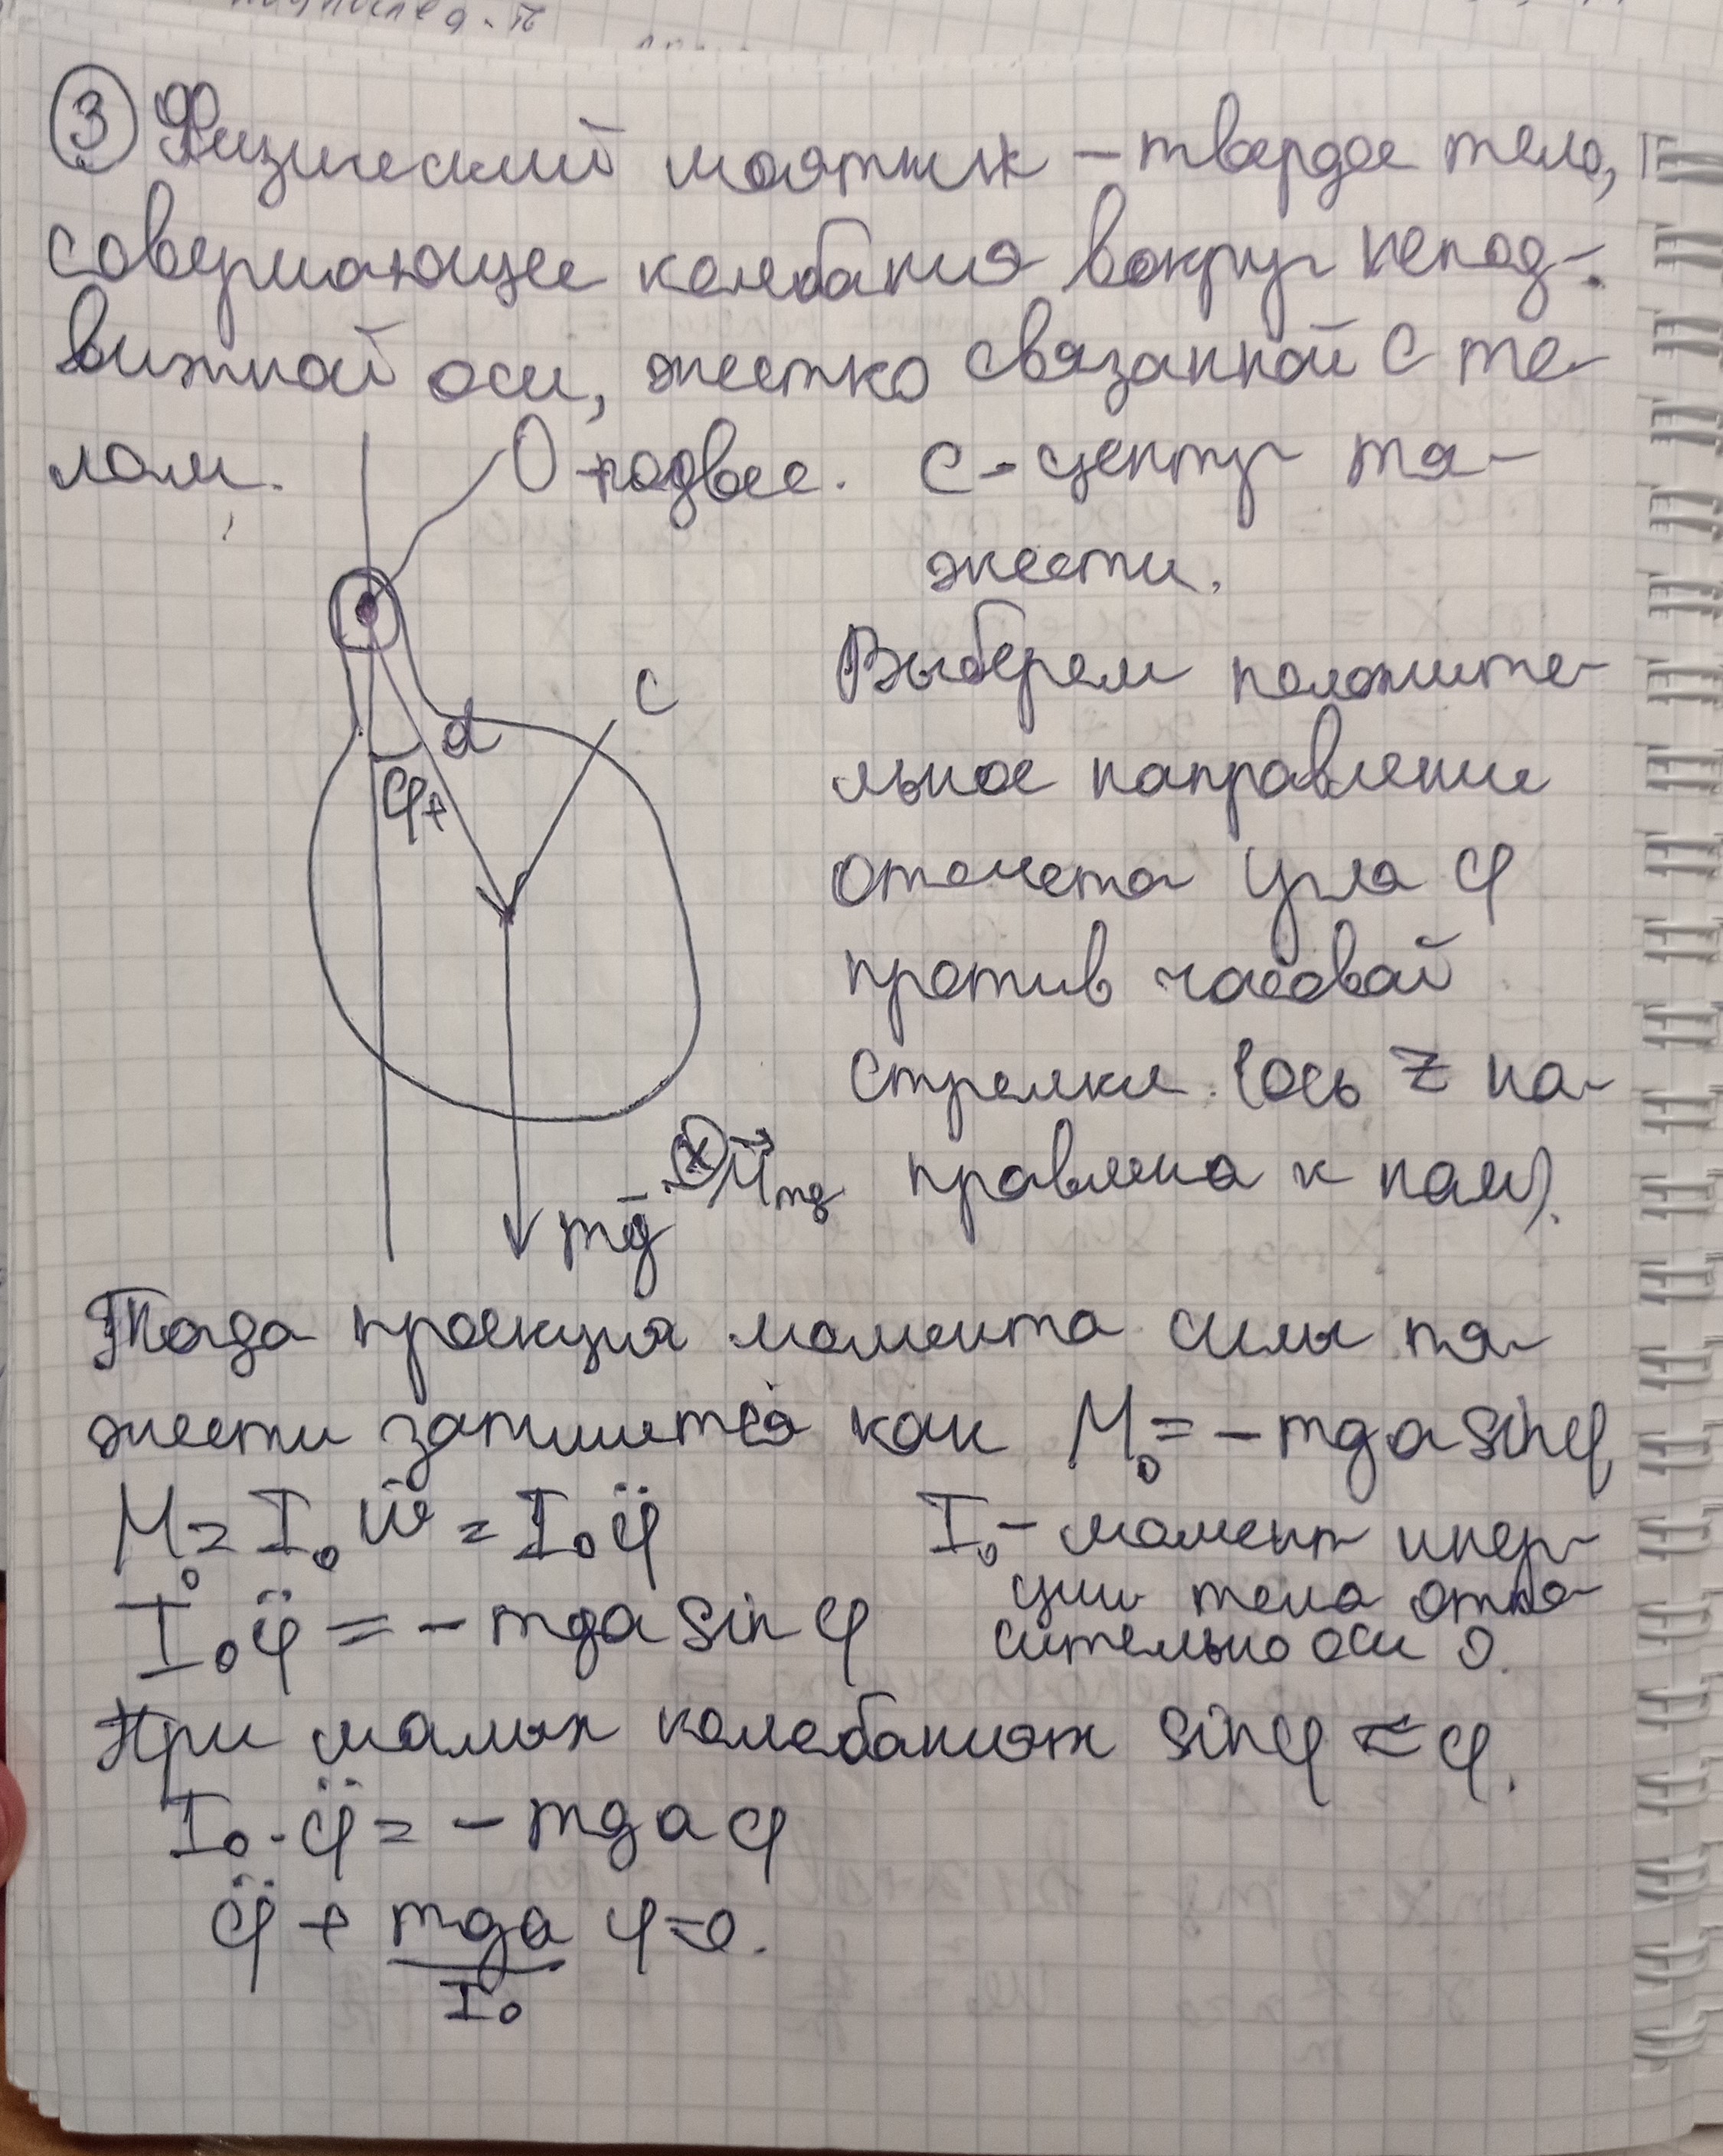 ③ Физический маятник – твердое тело,
совершающее колебания вокруг непод-
вижной оси, жестко связанной с те-
лом. О – подвес. С – центр тя-
жести.
С
d
φ+
Выберем положите-
льное направление
отсчета угла φ
против часовой
стрелки. (ось z на-
правлена к нам).
⊗ M⃗mg
mg̅
Тогда проекция момента силы тя-
жести запишется как M₀ = – mga sinφ
M₀ = I₀ ẅ = I₀φ̈
I₀ – момент инер-
ции тела отно-
сительно оси О.
I₀φ̈ = – mga sin φ
При малых колебаниях sinφ ≈ φ.
I₀ · φ̈ = – mgaφ
φ̈ + mga/I₀ φ = 0.